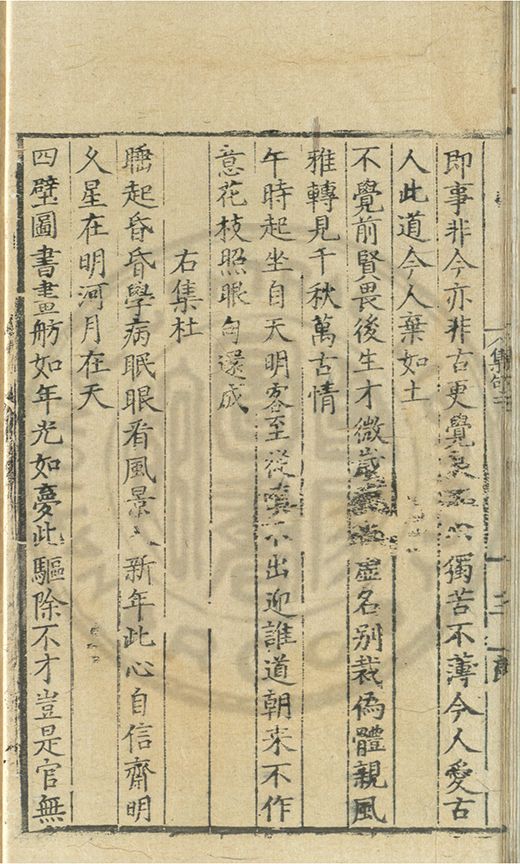 集句
即事非今亦非古更覺獨苦不薄今人愛古
人此道今人棄如土
不覺前賢畏後生才微歲虛名别裁偽體親風
雅轉見千秋萬古情
午時起坐自天明客至從嗔不出迎誰道朝来不作
意花枝照眼句還成
右集杜
睡起昏昏學病眠眼看風景入新年此心自信齋明
久星在明河月在天
四壁圖書畫舫如年光如夢此驅除不才豈是官無